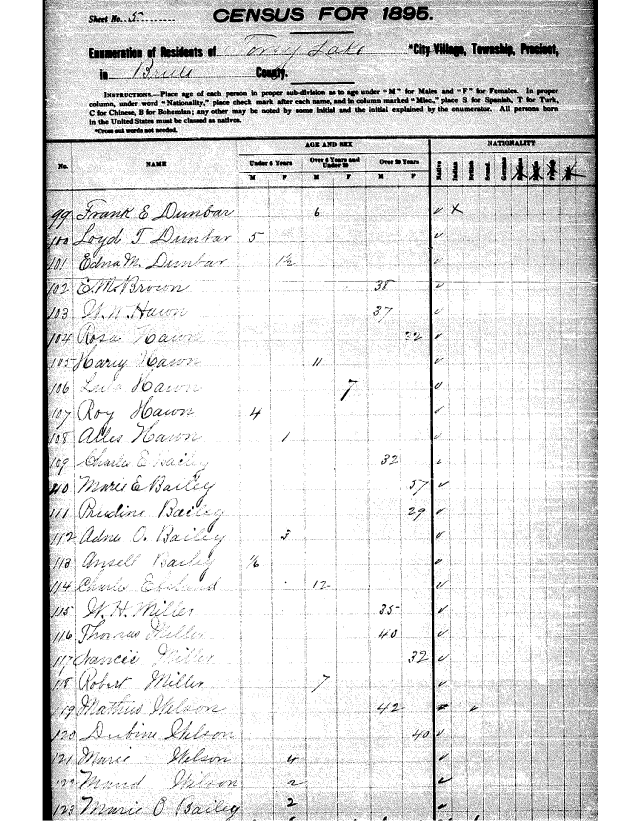 Sheet No. 5
CENSUS FOR 1895.
Enumeration of Residents of Torrey Lake *City Village, Township, Precinct,
in Brule County.
INSTRUCTIONS.—Place age of each person in proper sub-division as to age under "M" for Males and "F" for Females. In proper
column, under word "Nationality," place check mark after each name, and in column marked "Misc.," place S for Spanish, T for Turk,
C for Chinese, B for Bohemian; any other may be noted by some initial and the initial explained by the enumerator. All persons born
in the United States must be classed as natives.
*Cross out words not needed.
AGE AND SEX NATIONALITY
No. NAME Under 6 Years Over 6 Years and Under 20 Over 20 Years Native
M F M F M F
99 Frank E Dunbar 6 ✓ x
100 Loyd T Dunbar 5 ✓
101 Edna M. Dunbar 1½ ✓
102 E. M. Brown 38 ✓
103 Hawn 37 ✓
104 Rosa Hawn 32 ✓
105 Harry Hawn 11 ✓
106 Lula Hawn 7 ✓
107 Roy Hawn 4 ✓
108 Hawn 1 ✓
109 Charles E Bailey 32 ✓
110 Marie E Bailey 57 ✓
111 Bailey 29 ✓
112 O. Bailey 3 ✓
113 Ansell Bailey ✓
114 Charle 12 ✓
115 W. H. Miller 35 ✓
116 Thomas Miller 40 ✓
117 Miller 32 ✓
118 Robert Miller 7 ✓
119 Mathus Wilson 42 ✓
120 Wilson 40 ✓
121 Marie Wilson 4 ✓
122 Maud Wilson 2 ✓
123 Marie O Bailey 2 ✓